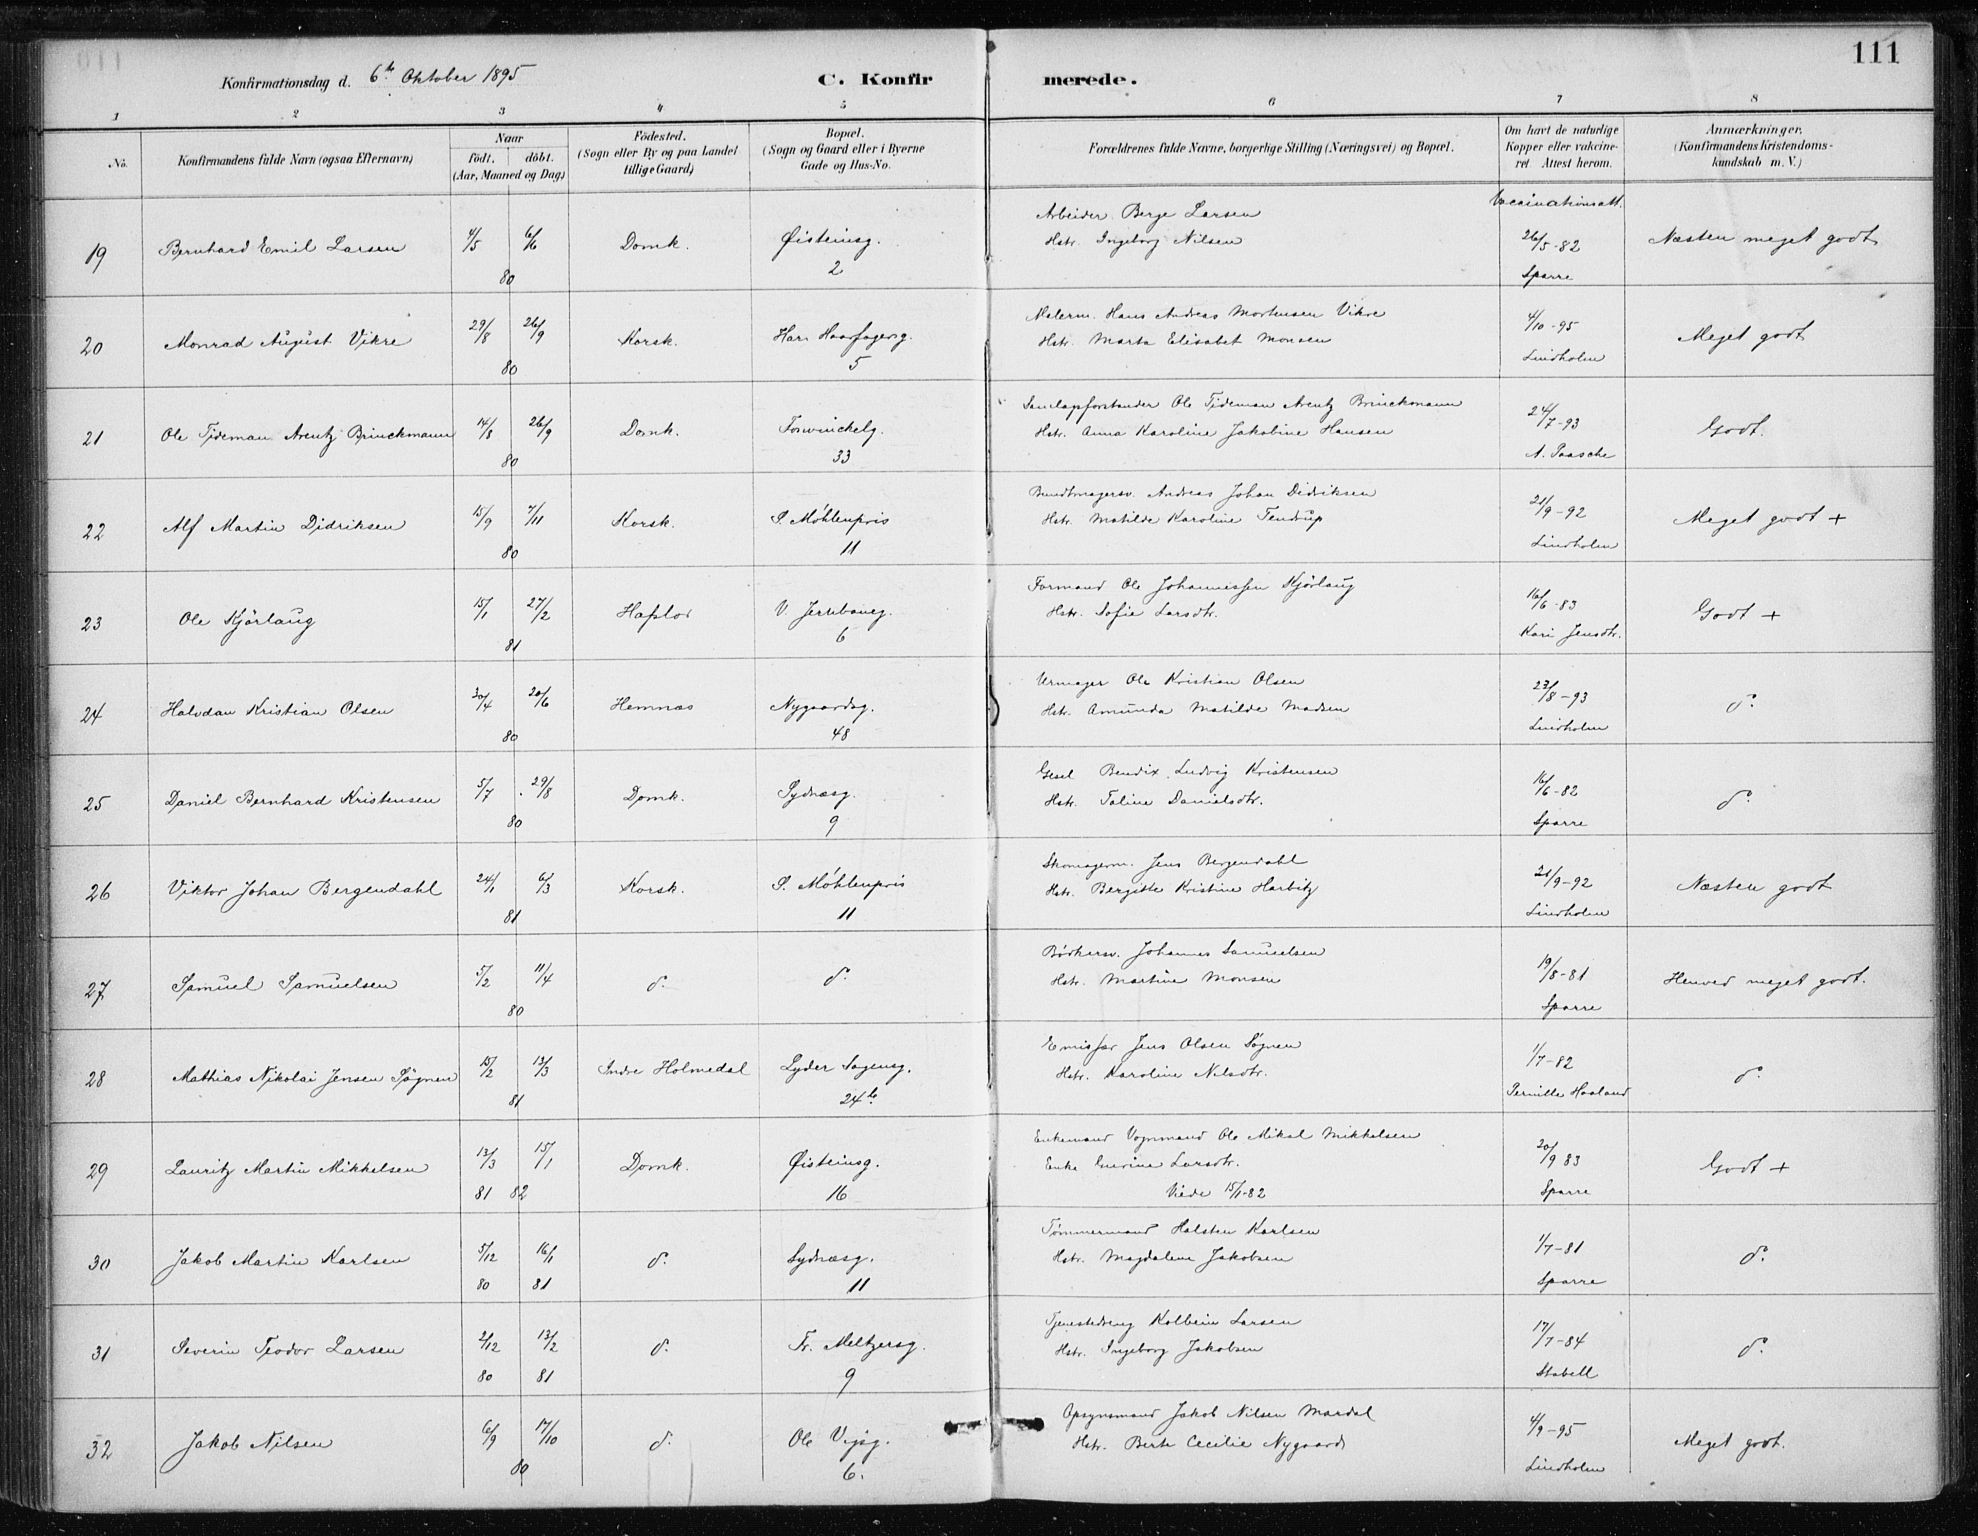 111
Konfirmationsdag d. 6te Oktober 1895
C. Konfirmerede.
1 2 3 4 5 6 7 8
No.
Konfirmandens fulde Navn (ogsaa Efternavn)
Naar
födt. döbt.
(Aar, Maaned og Dag)
Födested.
(Sogn eller By og paa Landet
tillige Gaard)
Bopæl.
(Sogn og Gaard eller i Byerne
Gade og Hus-No.
Forældrenes fulde Navne, borgerlige Stilling (Næringsvei) og Bopæl.
Om havt de naturlige
Kopper eller vakcine-
ret Attest herom.
Anmærkninger.
(Konfirmandens Kristendoms-
kundskab m. V.)
Vaccinationsatt.
19 Bernhard Emil Larsen 4/5 6/6 80 Domk. Øisteinsg. 2
Arbeider Berge Larsen
Hstr. Ingeborg Nilsen
26/5-82 Sparre
Næsten meget godt
20 Monrad August Vikre 29/8 26/9 80 Korsk. Har. Haarfagersg. 5
Malerm. Hans Andreas Mortensen Vikre
Hstr. Marta Elisabet Monsen
4/10-95 Lindholm
Meget godt
21 Ole Tideman Arentz Brinckmann 14/8 26/9 80 Domk. 33
Ole Tideman Arentz Brinckmann
Hstr. Anna Karoline Jakobine Hansen
24/7-93 A. Paasche
Godt.
22 Alf Martin Didriksen 15/9 7/11 80 Korsk. S. Møhlenpris 11
Bundtmagersv. Andreas Johan Didriksen
Hstr. Matilde Karoline Tendrup
21/9-92 Lindholm
Meget godt +
23 Ole Kjörlaug 15/1 27/2 81 Hafslo V. 6
Formand Ole Johannessen Kjörlaug
Hstr. Sofie Larsdtr.
16/6-83 Kari Jensdtr.
Godt +
24 Halvdan Kristian Olsen 30/4 20/6 80 Hemnæs Nygaardsg. 48
Urmager Ole Kristian Olsen
Hstr. Amunda Matilde Madsen
23/8-93 Lindholm
do.
25 Daniel Bernhard Kristensen 5/7 29/8 80 Domk. Sydnæsg. 9
Gesel Bendix Ludvig Kristensen
Hstr. Taline Danielsdtr.
16/6-82 Sparre
do.
26 Viktor Johan Bergendahl 24/1 6/3 81 Korsk. S. Møhlenpris 11
Skomagerm. Jens Bergendahl
Hstr. Bergitte Kristine Harbitz
21/9-92 Lindholm
Næsten godt
27 Samuel Samuelsen 5/2 11/4 80 do. do.
Bödkersv. Johannes Samuelsen
Hstr. Martine Monsen
19/8-81 Sparre
Henved meget godt.
28 Mathias Nikolai Jensen Søgnen 15/2 13/3 81 Indre Holmedal Lyder Sagensg. 24b
Emissær Jens Olsen Søgnen
Hstr. Karoline Nilsdtr.
1/7-82 Pernille Haaland
do.
29 Lauritz Martin Mikkelsen 13/3 81 15/1 82 Domk. Øisteinsg. 16
Enkemand Vognmand Ole Mikal Mikkelsen
Enke Larsdtr.
Viede 15/1-82
20/9 83 Sparre
Godt +
30 Jakob Martin Karlsen 5/12 80 16/1 81 do. Sydnæsg. 11
Tömmermand Halsten Karlsen
Hstr. Magdalene Jakobsen
1/7-81 Sparre
do.
31 Severin Teodor Larsen 2/12 80 13/2 81 do. Fr. Meltzersg. 9
Tjenestedreng Kolbein Larsen
Hstr. Ingeborg Jakobsen
17/7-84 Stabell
do.
32 Jakob Nilsen 6/9 17/10 80 do. Ole Vigsg. 6.
Opsynsmand Jakob Nilsen Mardal
Hstr. Berte Cecilie Nygaard
4/9-95 Lindholm
Meget godt.